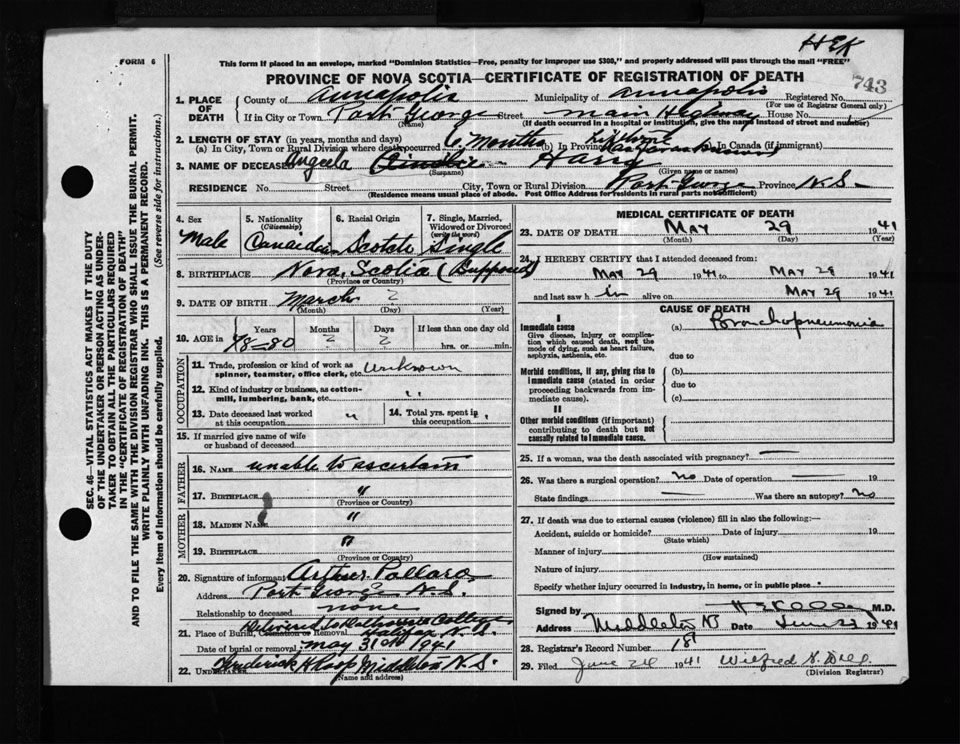 HEK
743
FORM 6
This form if placed in an envelope, marked "Dominion Statistics—Free, penalty for improper use $300," and properly addressed will pass through the mail "FREE"
PROVINCE OF NOVA SCOTIA—CERTIFICATE OF REGISTRATION OF DEATH
1. PLACE OF DEATH County of Annapolis Municipality of Annapolis Registered No.
(For use of Registrar General only)
If in City or Town Port George Street Main Highway House No.
(Name) (If death occurred in a hospital or institution, give the name instead of street and number)
2. LENGTH OF STAY (in years, months and days)
(a) In City, Town or Rural Division where death occurred Months (b) In Province in Canada (if immigrant)
3. NAME OF DECEASED Harry
(Surname) (Given name or names)
RESIDENCE No. Street City, Town or Rural Division Port George Province N.S.
(Residence means usual place of abode. Post Office Address for residents in rural parts not sufficient)
4. Sex Male
5. Nationality (Citizenship) Canadian
6. Racial Origin
7. Single, Married, Widowed or Divorced (write the word) Single
8. BIRTHPLACE Nova Scotia
(Province or Country)
9. DATE OF BIRTH March ?
(Month) (Day) (Year)
10. AGE in Years Months Days If less than one day old
78–80 ? ? hrs. or min.
OCCUPATION
11. Trade, profession or kind of work as spinner, teamster, office clerk, etc. unknown
12. Kind of industry or business, as cotton-mill, lumbering, bank, etc. "
13. Date deceased last worked at this occupation "
14. Total yrs. spent in this occupation "
15. If married give name of wife or husband of deceased
FATHER
16. NAME unable to ascertain
17. BIRTHPLACE "
(Province or Country)
MOTHER
18. MAIDEN NAME "
19. BIRTHPLACE "
(Province or Country)
20. Signature of informant Arthur
Address Port George N.S.
Relationship to deceased none
Delivered to Dalhousie College
21. Place of Burial, Cremation or Removal Halifax N.S.
Date of burial or removal May 31st 1941
22. UNDERTAKER Middleton N.S.
(Name and address)
MEDICAL CERTIFICATE OF DEATH
23. DATE OF DEATH May 29 1941
(Month) (Day) (Year)
24. I HEREBY CERTIFY that I attended deceased from:
May 29 1941 to May 29 1941
and last saw him alive on May 29 1941
CAUSE OF DEATH
I
Immediate cause (a) Bronchopneumonia
Give disease, injury or complication which caused death, not the mode of dying, such as heart failure, asphyxia, asthenia, etc.
due to
Morbid conditions, if any, giving rise to immediate cause (stated in order proceeding backwards from immediate cause). (b)
due to
(c)
II
Other morbid conditions (if important) contributing to death but not causally related to immediate cause.
25. If a woman, was the death associated with pregnancy? —
26. Was there a surgical operation? no Date of operation — 19
State findings — Was there an autopsy? no
27. If death was due to external causes (violence) fill in also the following:—
Accident, suicide or homicide? Date of injury 19
(State which)
Manner of injury
(How sustained)
Nature of injury
Specify whether injury occurred in industry, in home, or in public place
Signed by M.D.
Address Middleton NS Date 1941
28. Registrar's Record Number 18
29. Filed June 24 1941 Wilfred
(Division Registrar)
SEC. 46—VITAL STATISTICS ACT MAKES IT THE DUTY OF THE UNDERTAKER OR PERSON ACTING AS UNDERTAKER TO OBTAIN ALL THE PARTICULARS REQUIRED IN THE "CERTIFICATE OF REGISTRATION OF DEATH" AND TO FILE THE SAME WITH THE DIVISION REGISTRAR WHO SHALL ISSUE THE BURIAL PERMIT.
WRITE PLAINLY WITH UNFADING INK. THIS IS A PERMANENT RECORD.
Every item of Information should be carefully supplied. (See reverse side for instructions.)